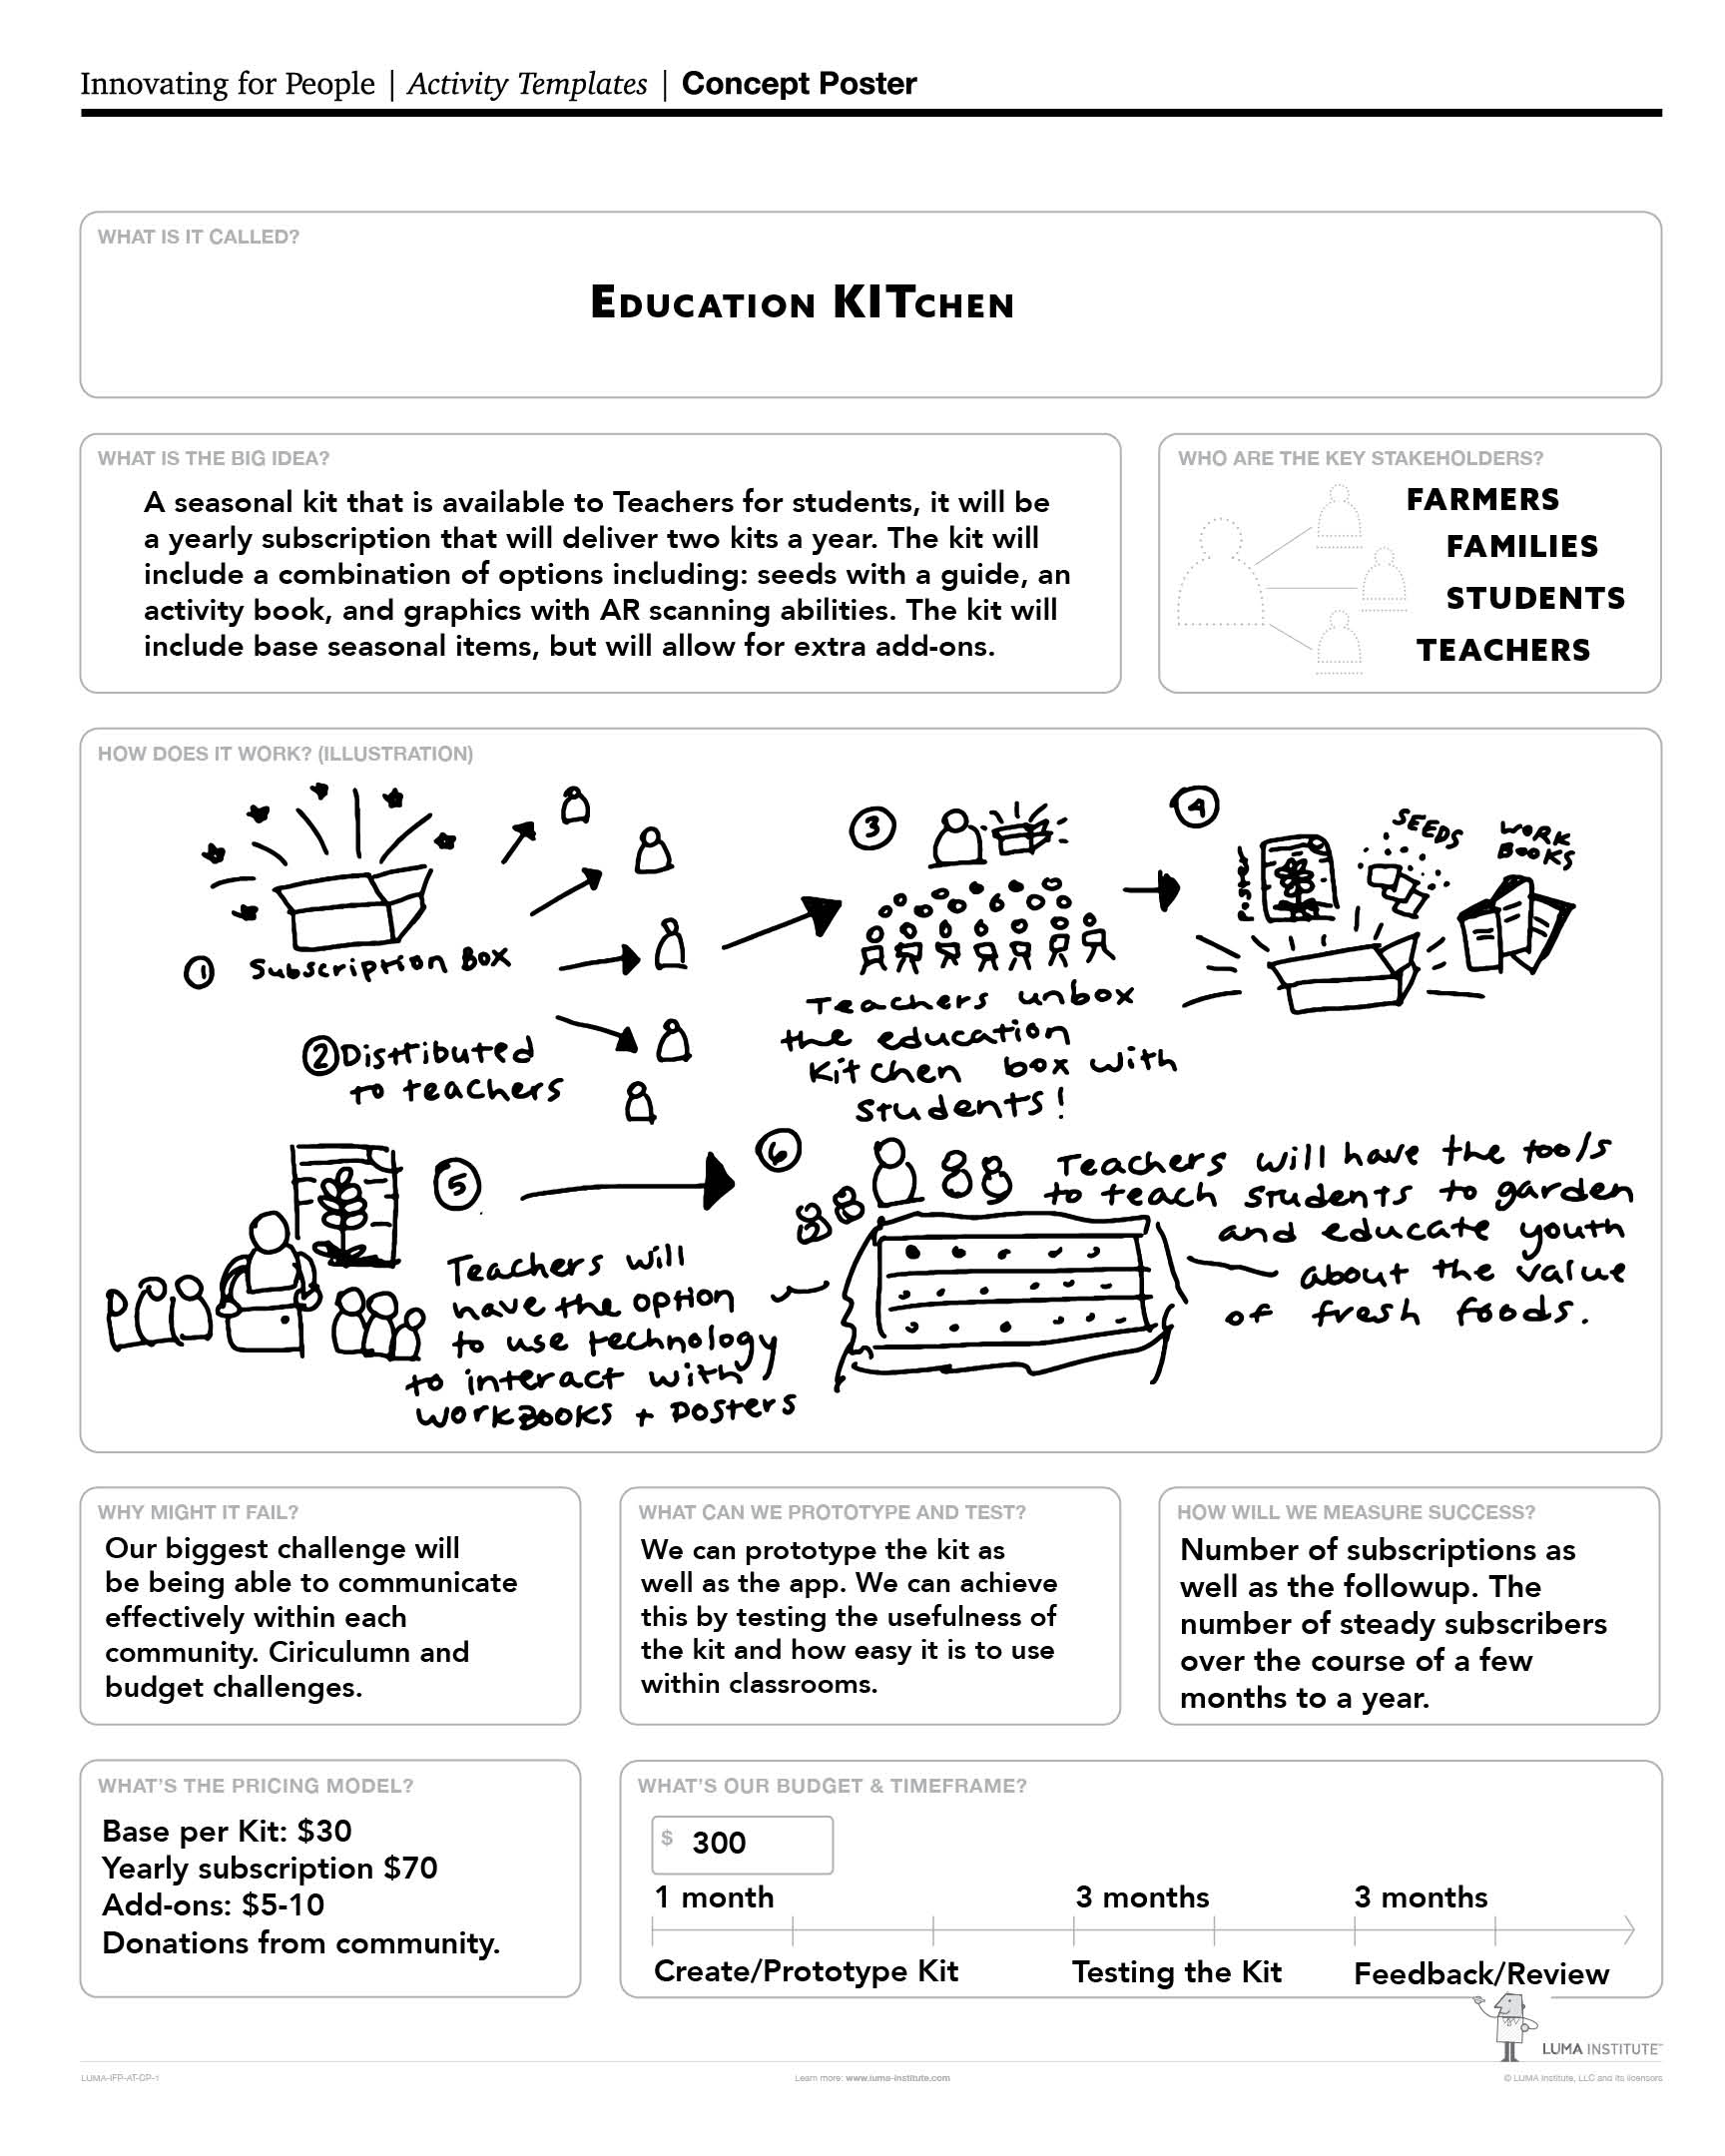 Innovating for People | Activity Templates | Concept Poster
WHAT IS IT CALLED?
EDUCATION KITCHEN
WHAT IS THE BIG IDEA?
A seasonal kit that is available to Teachers for students, it will be
a yearly subscription that will deliver two kits a year. The kit will
include a combination of options including: seeds with a guide, an
activity book, and graphics with AR scanning abilities. The kit will
include base seasonal items, but will allow for extra add-ons.
WHO ARE THE KEY STAKEHOLDERS?
FARMERS
FAMILIES
STUDENTS
TEACHERS
HOW DOES IT WORK? (ILLUSTRATION)
1 Subscription Box
2 Distributed
to teachers
3
Teachers unbox
the education
Kitchen box with
students!
4
Poster
SEEDS
WORK
BOOKS
5
Teachers will
have the option
to use technology
to interact with
workbooks + posters
6
Teachers will have the tools
to teach students to garden
and educate youth
about the value
of fresh foods.
WHY MIGHT IT FAIL?
Our biggest challenge will
be being able to communicate
effectively within each
community. Ciriculumn and
budget challenges.
WHAT CAN WE PROTOTYPE AND TEST?
We can prototype the kit as
well as the app. We can achieve
this by testing the usefulness of
the kit and how easy it is to use
within classrooms.
HOW WILL WE MEASURE SUCCESS?
Number of subscriptions as
well as the followup. The
number of steady subscribers
over the course of a few
months to a year.
WHAT'S THE PRICING MODEL?
Base per Kit: $30
Yearly subscription $70
Add-ons: $5-10
Donations from community.
WHAT'S OUR BUDGET & TIMEFRAME?
$ 300
1 month 3 months 3 months
Create/Prototype Kit Testing the Kit Feedback/Review
LUMA INSTITUTE™
LUMA-IFP-AT-CP-1 Learn more: www.luma-institute.com © LUMA Institute, LLC and its licensors